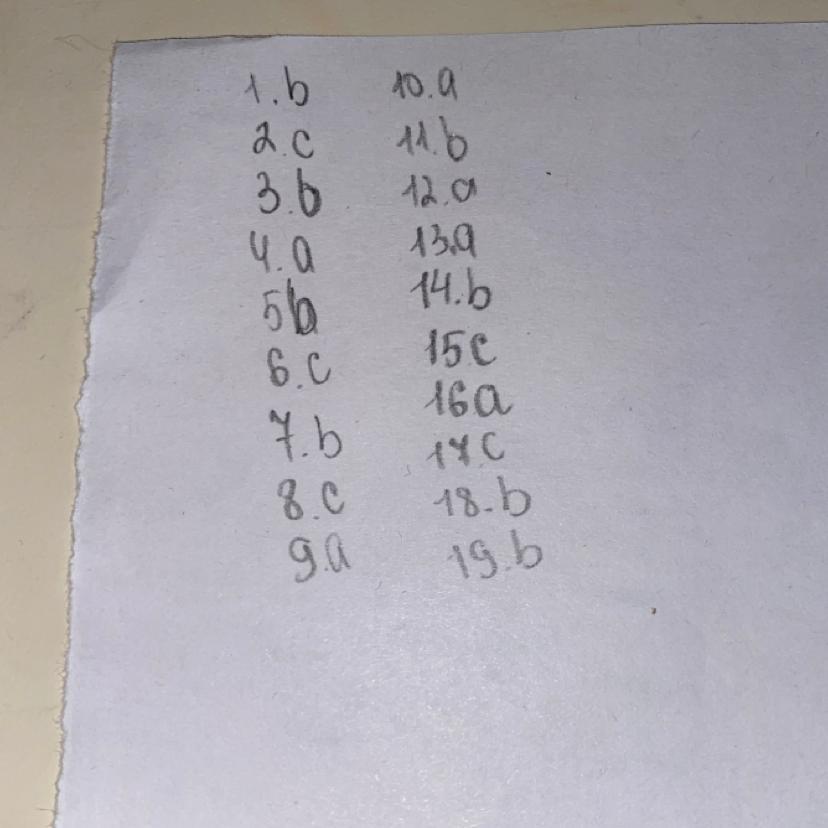 1.b
2.c
3.b
4.a
5b
6.c
7.b
8.c
9.a
10.a
11.b
12.a
13.a
14.b
15c
16a
17.c
18.b
19.b